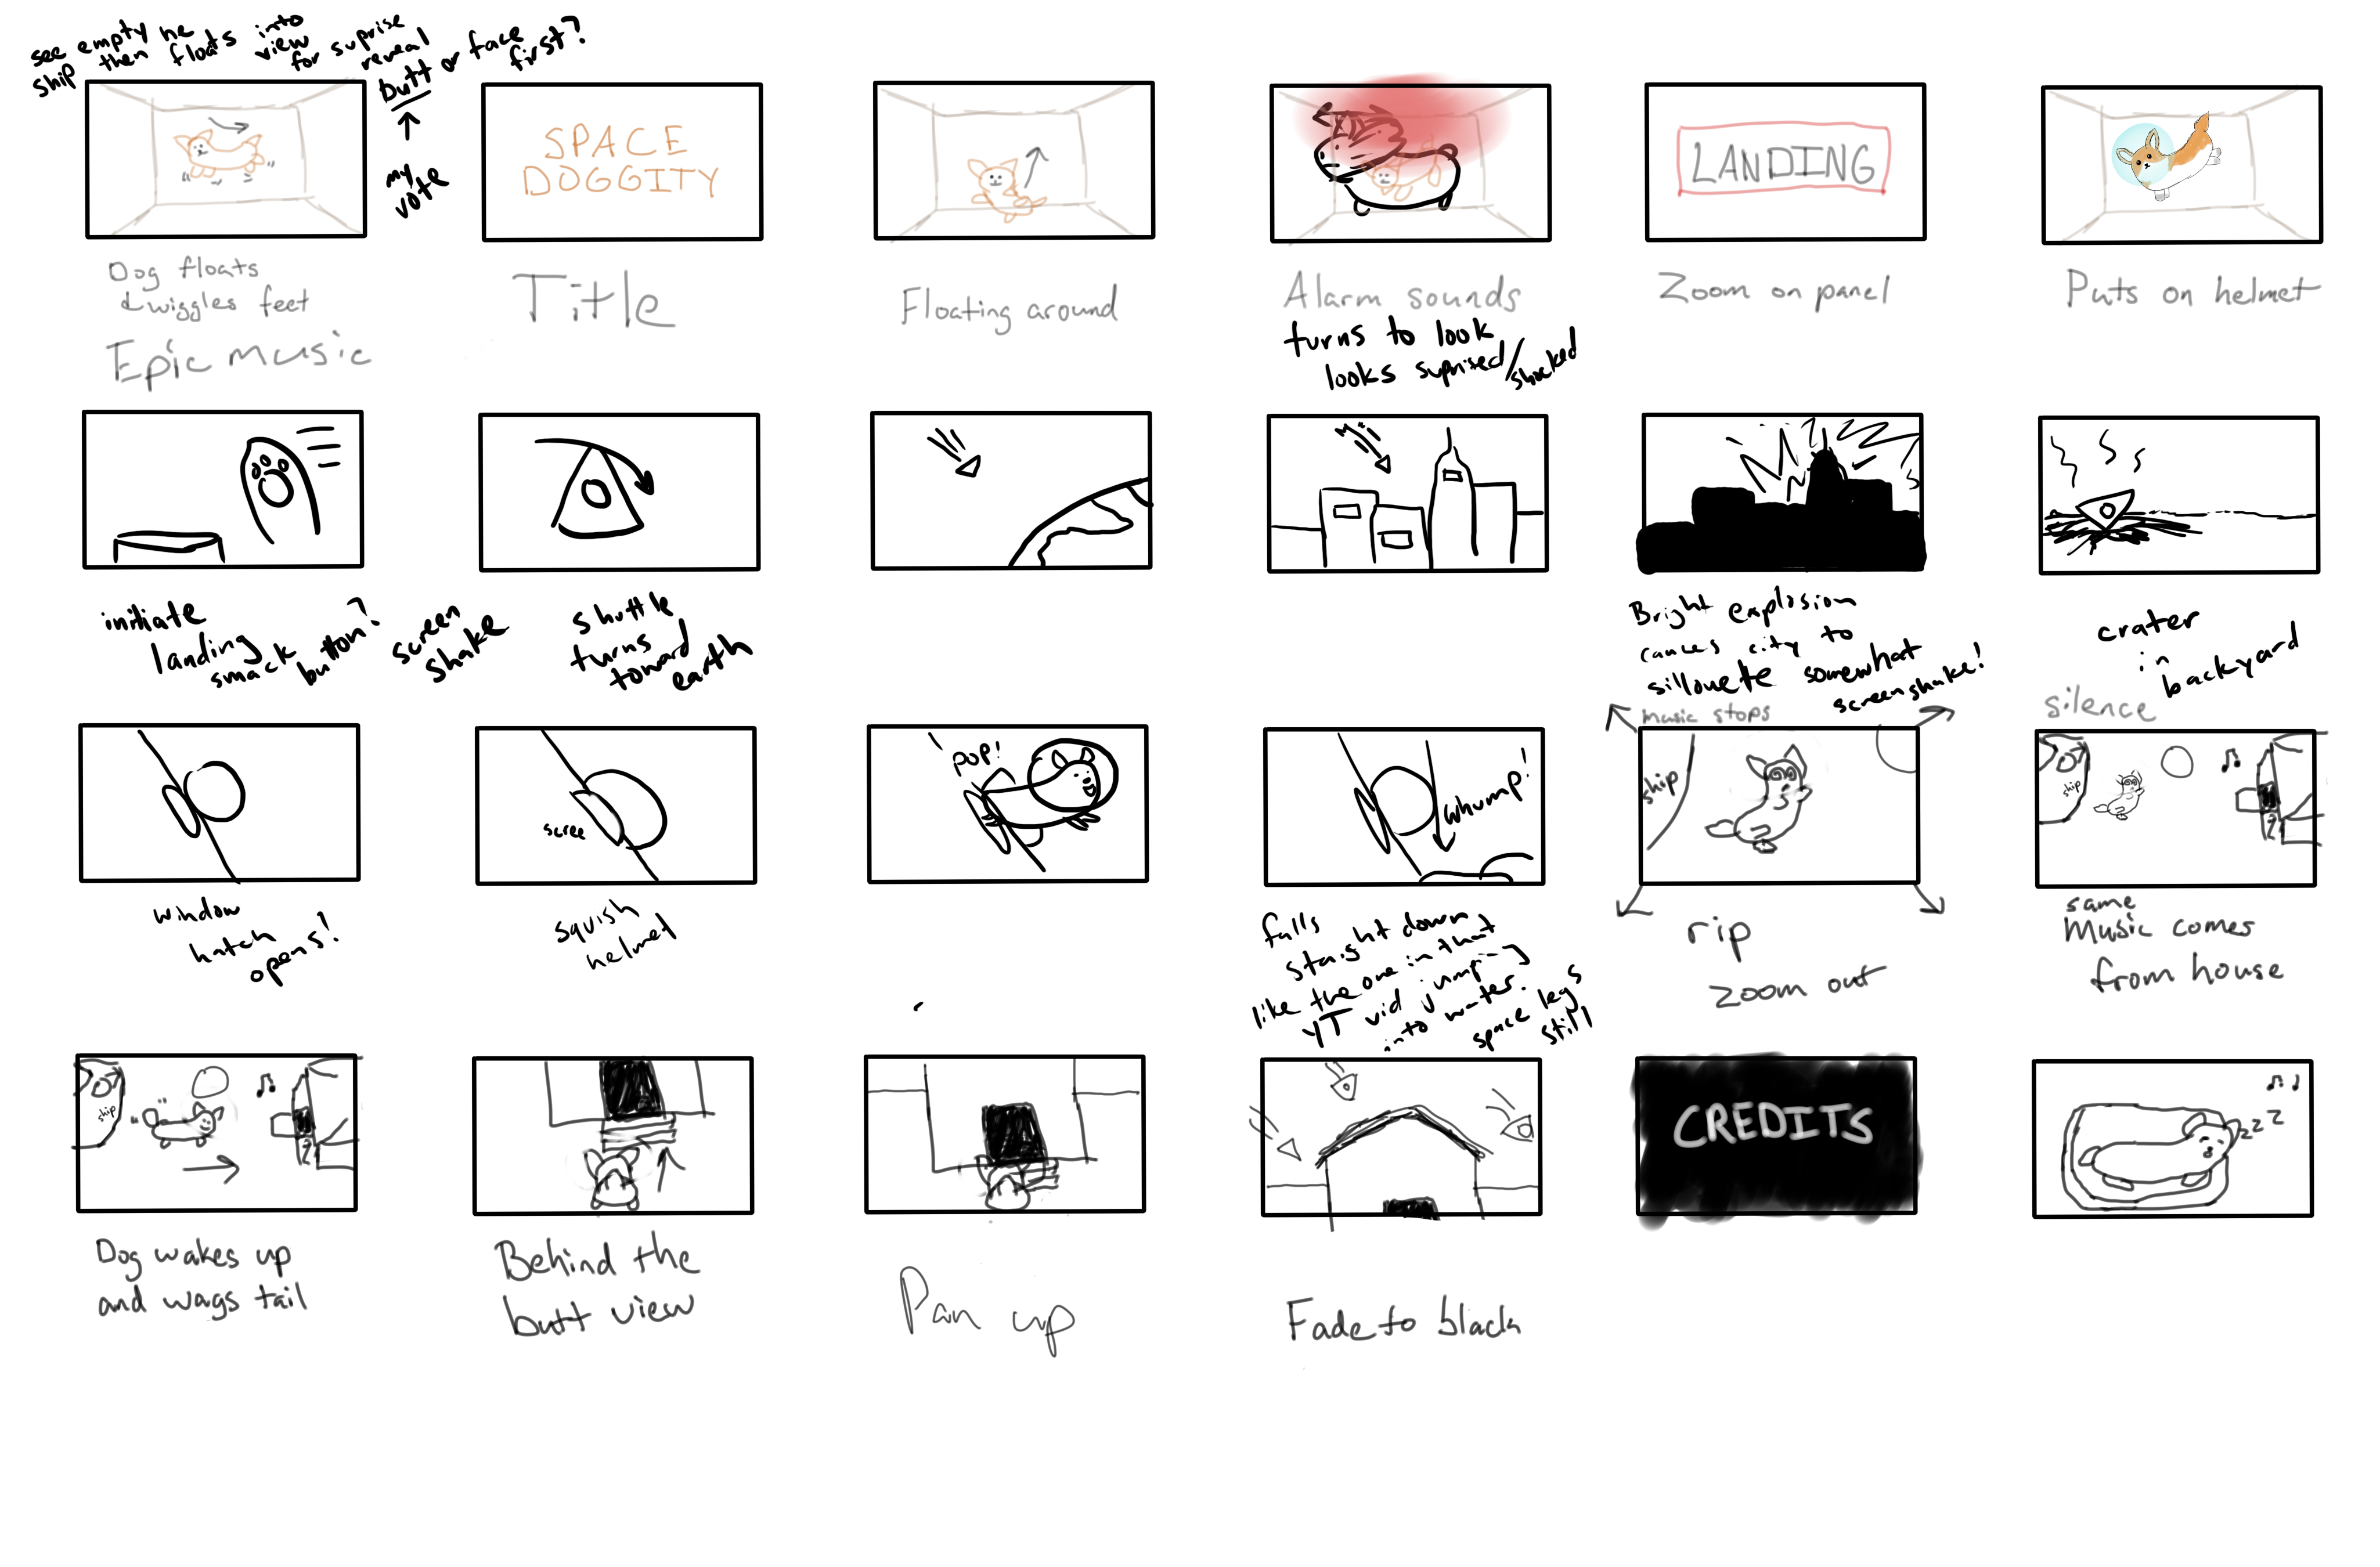 see empty he into
ship then floats view
for suprise
reveal
butt or face
first?
my
vote
SPACE
DOGGITY
LANDING
Dog floats
& wiggles feet
Epic music
Title
Floating around
Alarm sounds
turns to look
looks suprised/shocked
Zoom on panel
Puts on helmet
initiate
landing
smack button?
screen
shake
shuttle
turns
toward
earth
Bright explosion
causes city to
sillouete somewhat
screenshake!
music stops
crater
in
backyard
silence
scree
pop!
whump!
ship
ship
window
hatch
opens!
squish
helmet
falls
staight down
like the one in that
YT vid jumping
into water.
space legs
still
rip
zoom out
same
Music comes
from house
ship
CREDITS
zzz
Dog wakes up
and wags tail
Behind the
butt view
Pan up
Fade to black